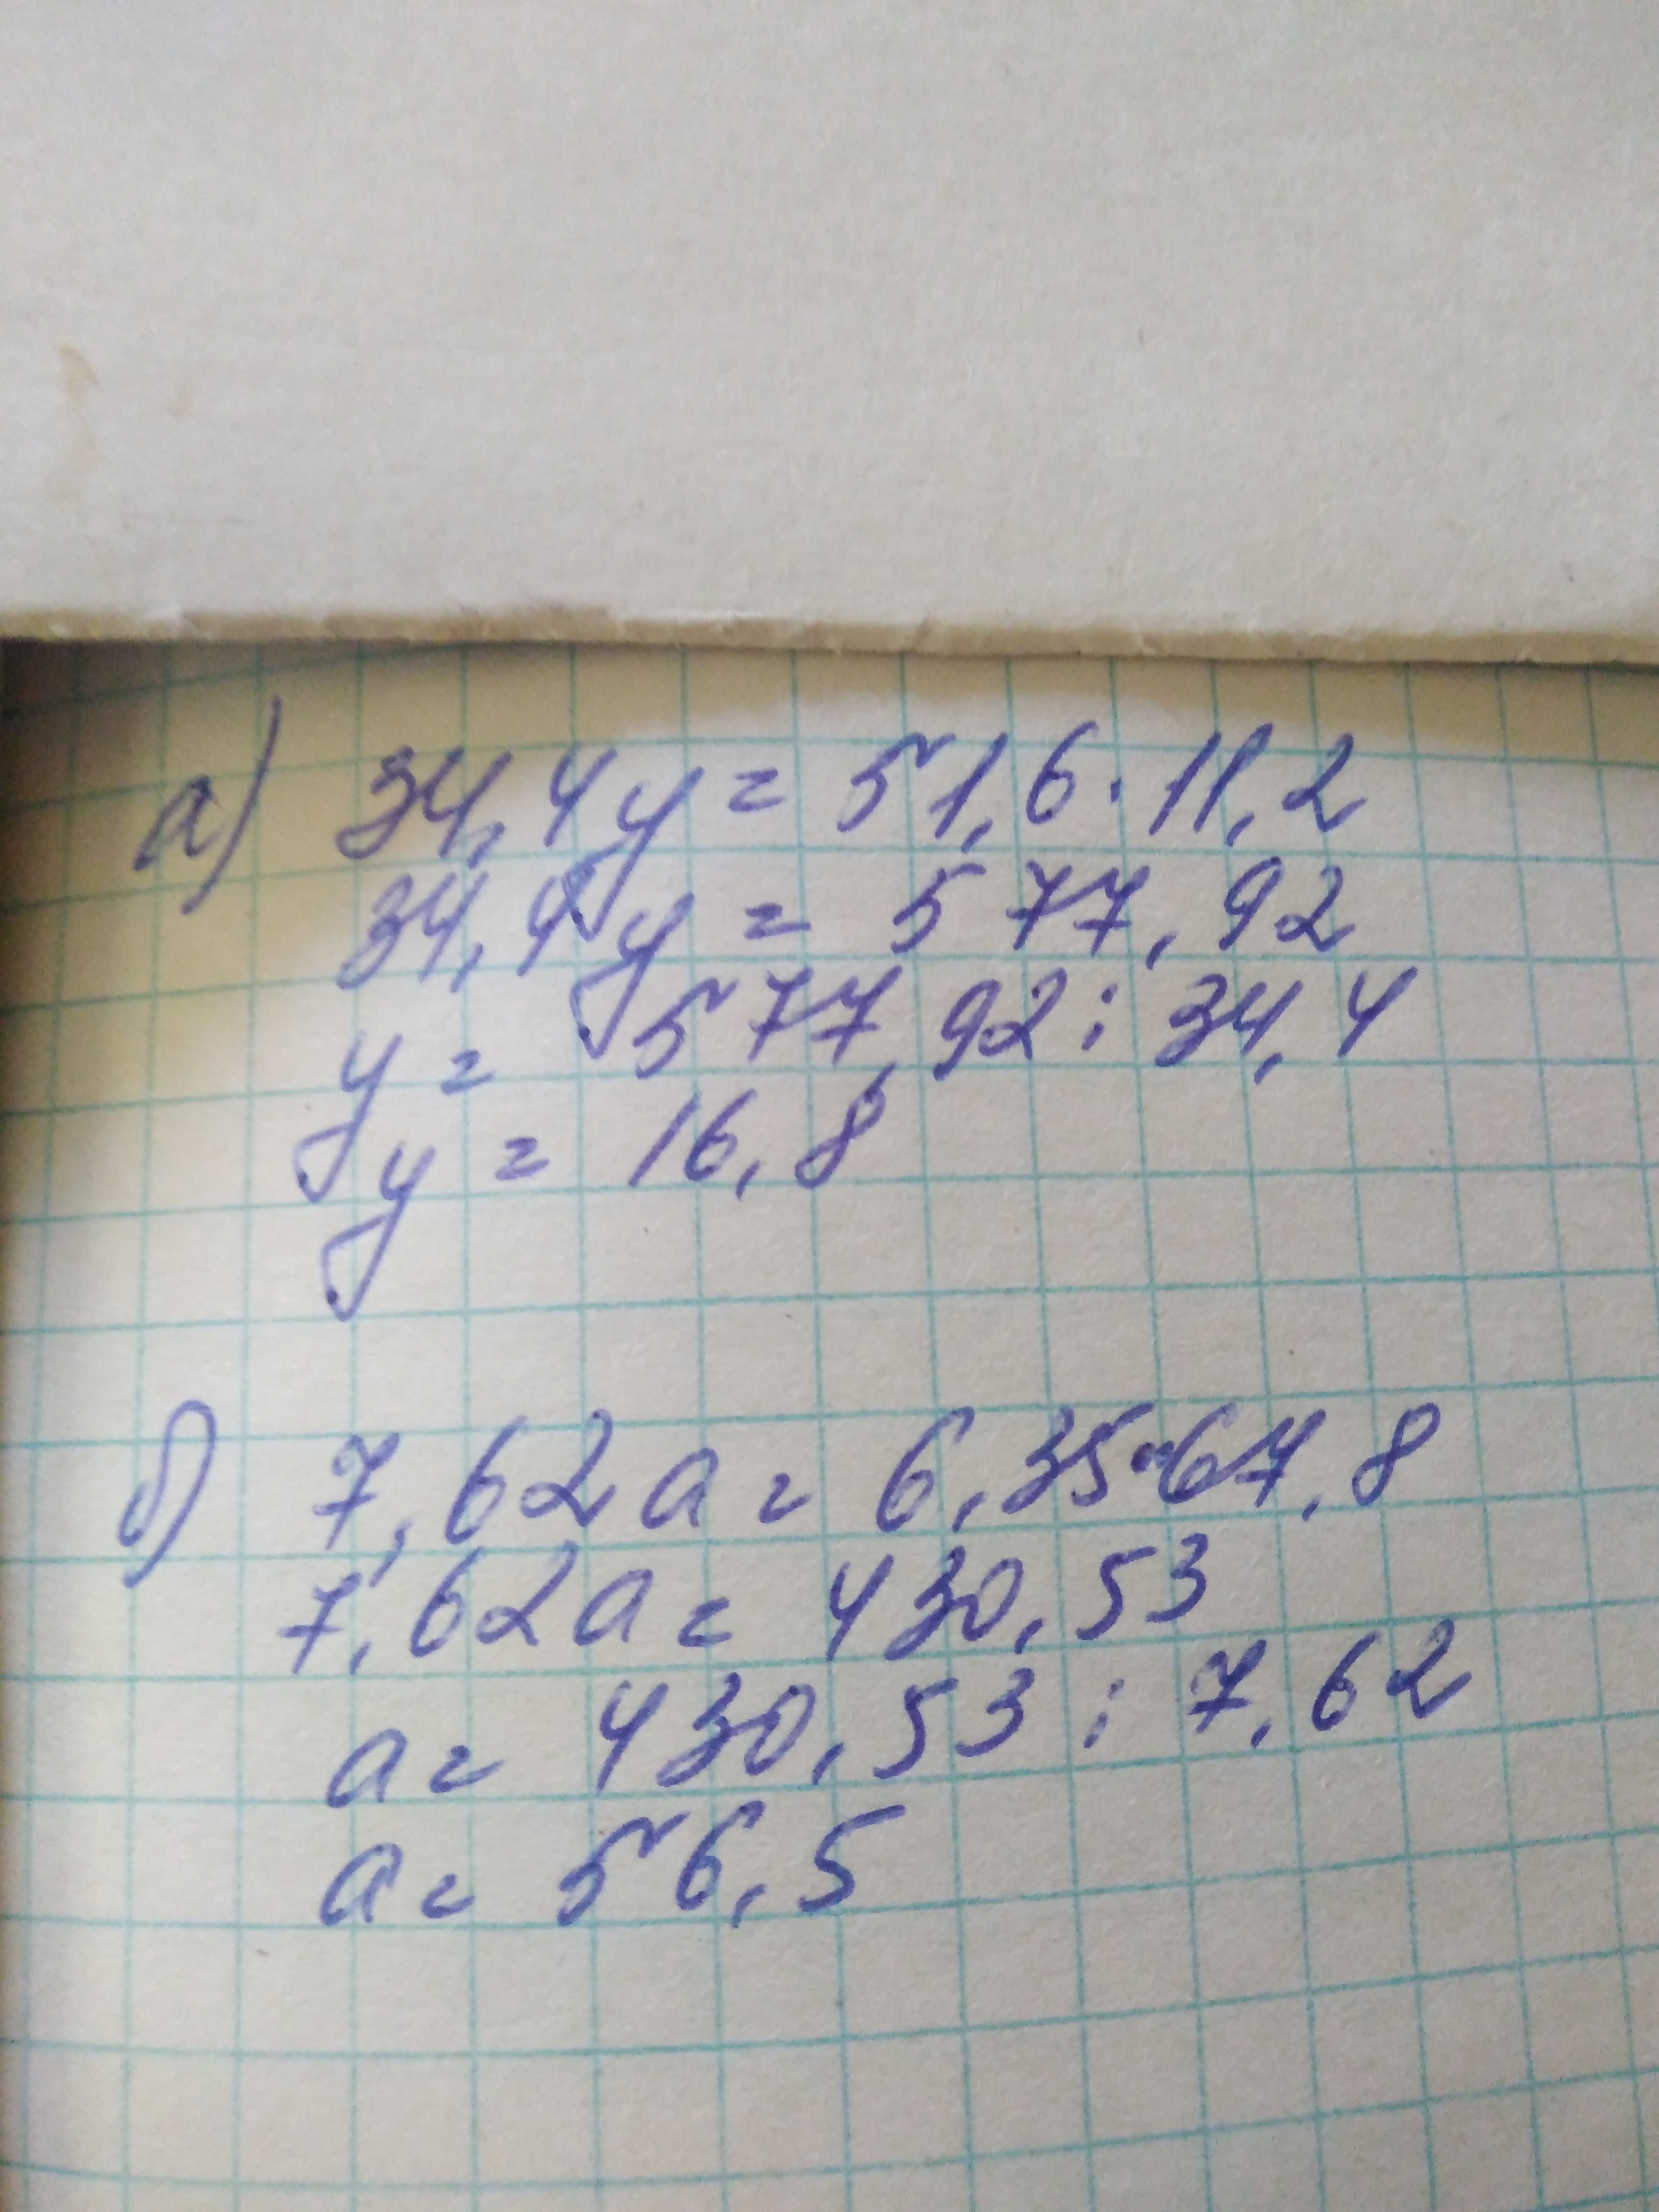 а) 34,4y = 51,6 · 11,2
34,4y = 577,92
y = 577,92 : 34,4
y = 16,8
б) 7,62a = 6,35·67,8
7,62a = 430,53
a = 430,53 : 7,62
a = 56,5